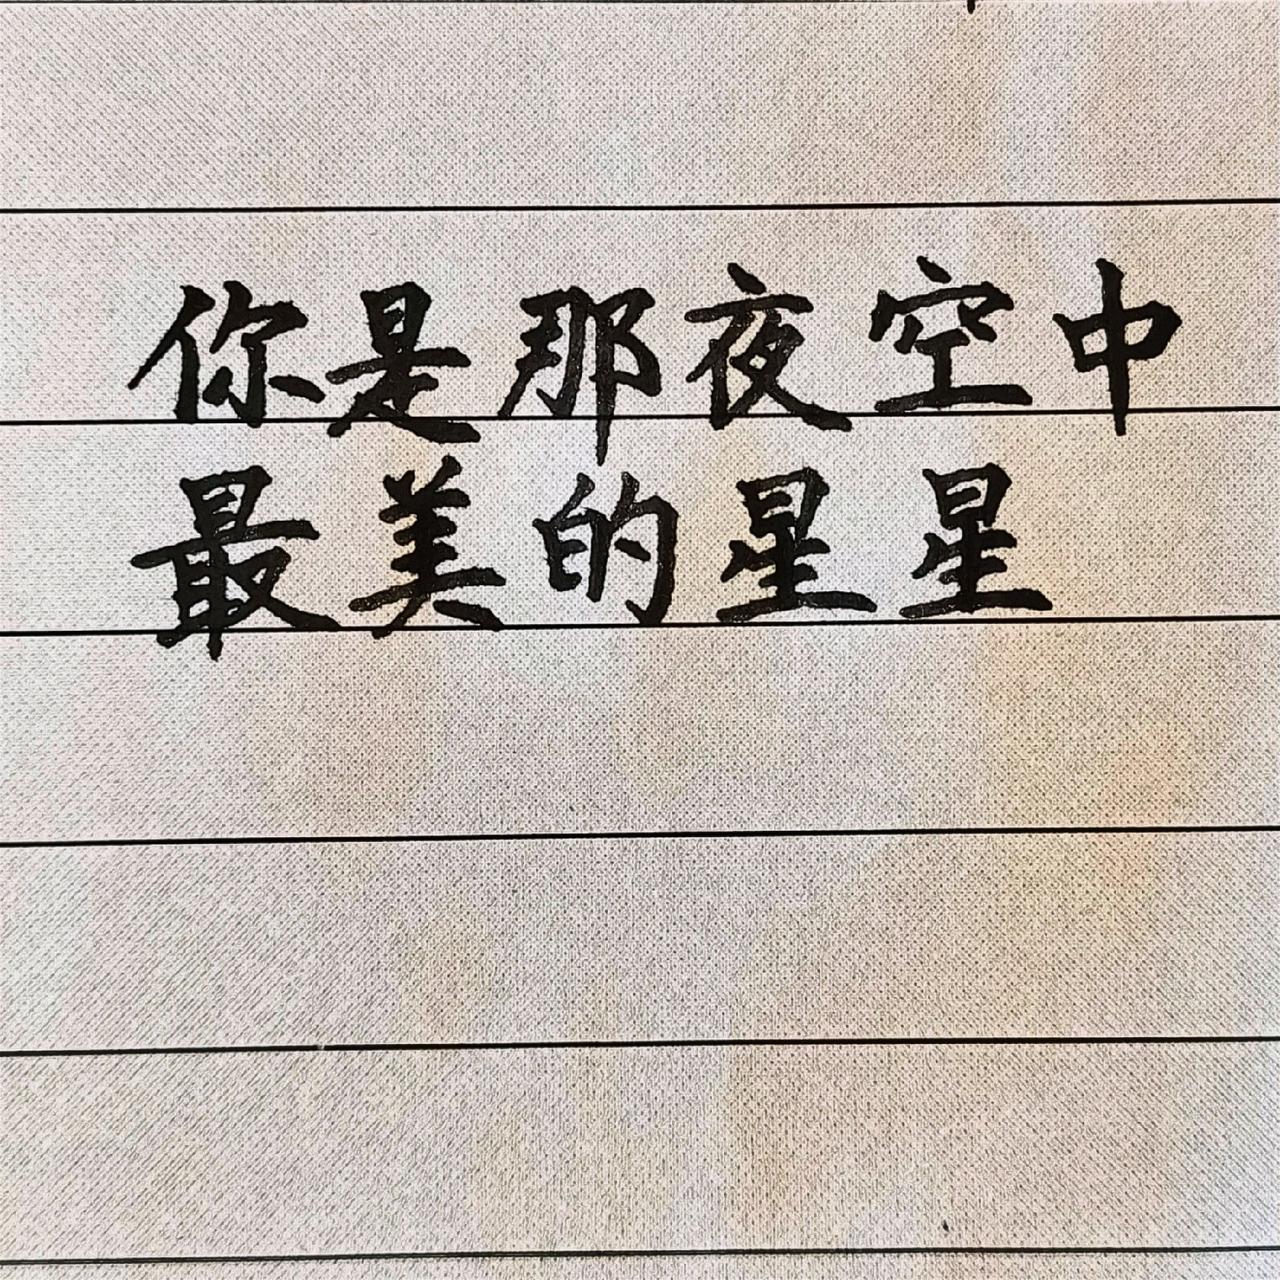 你是那夜空中
最美的星星